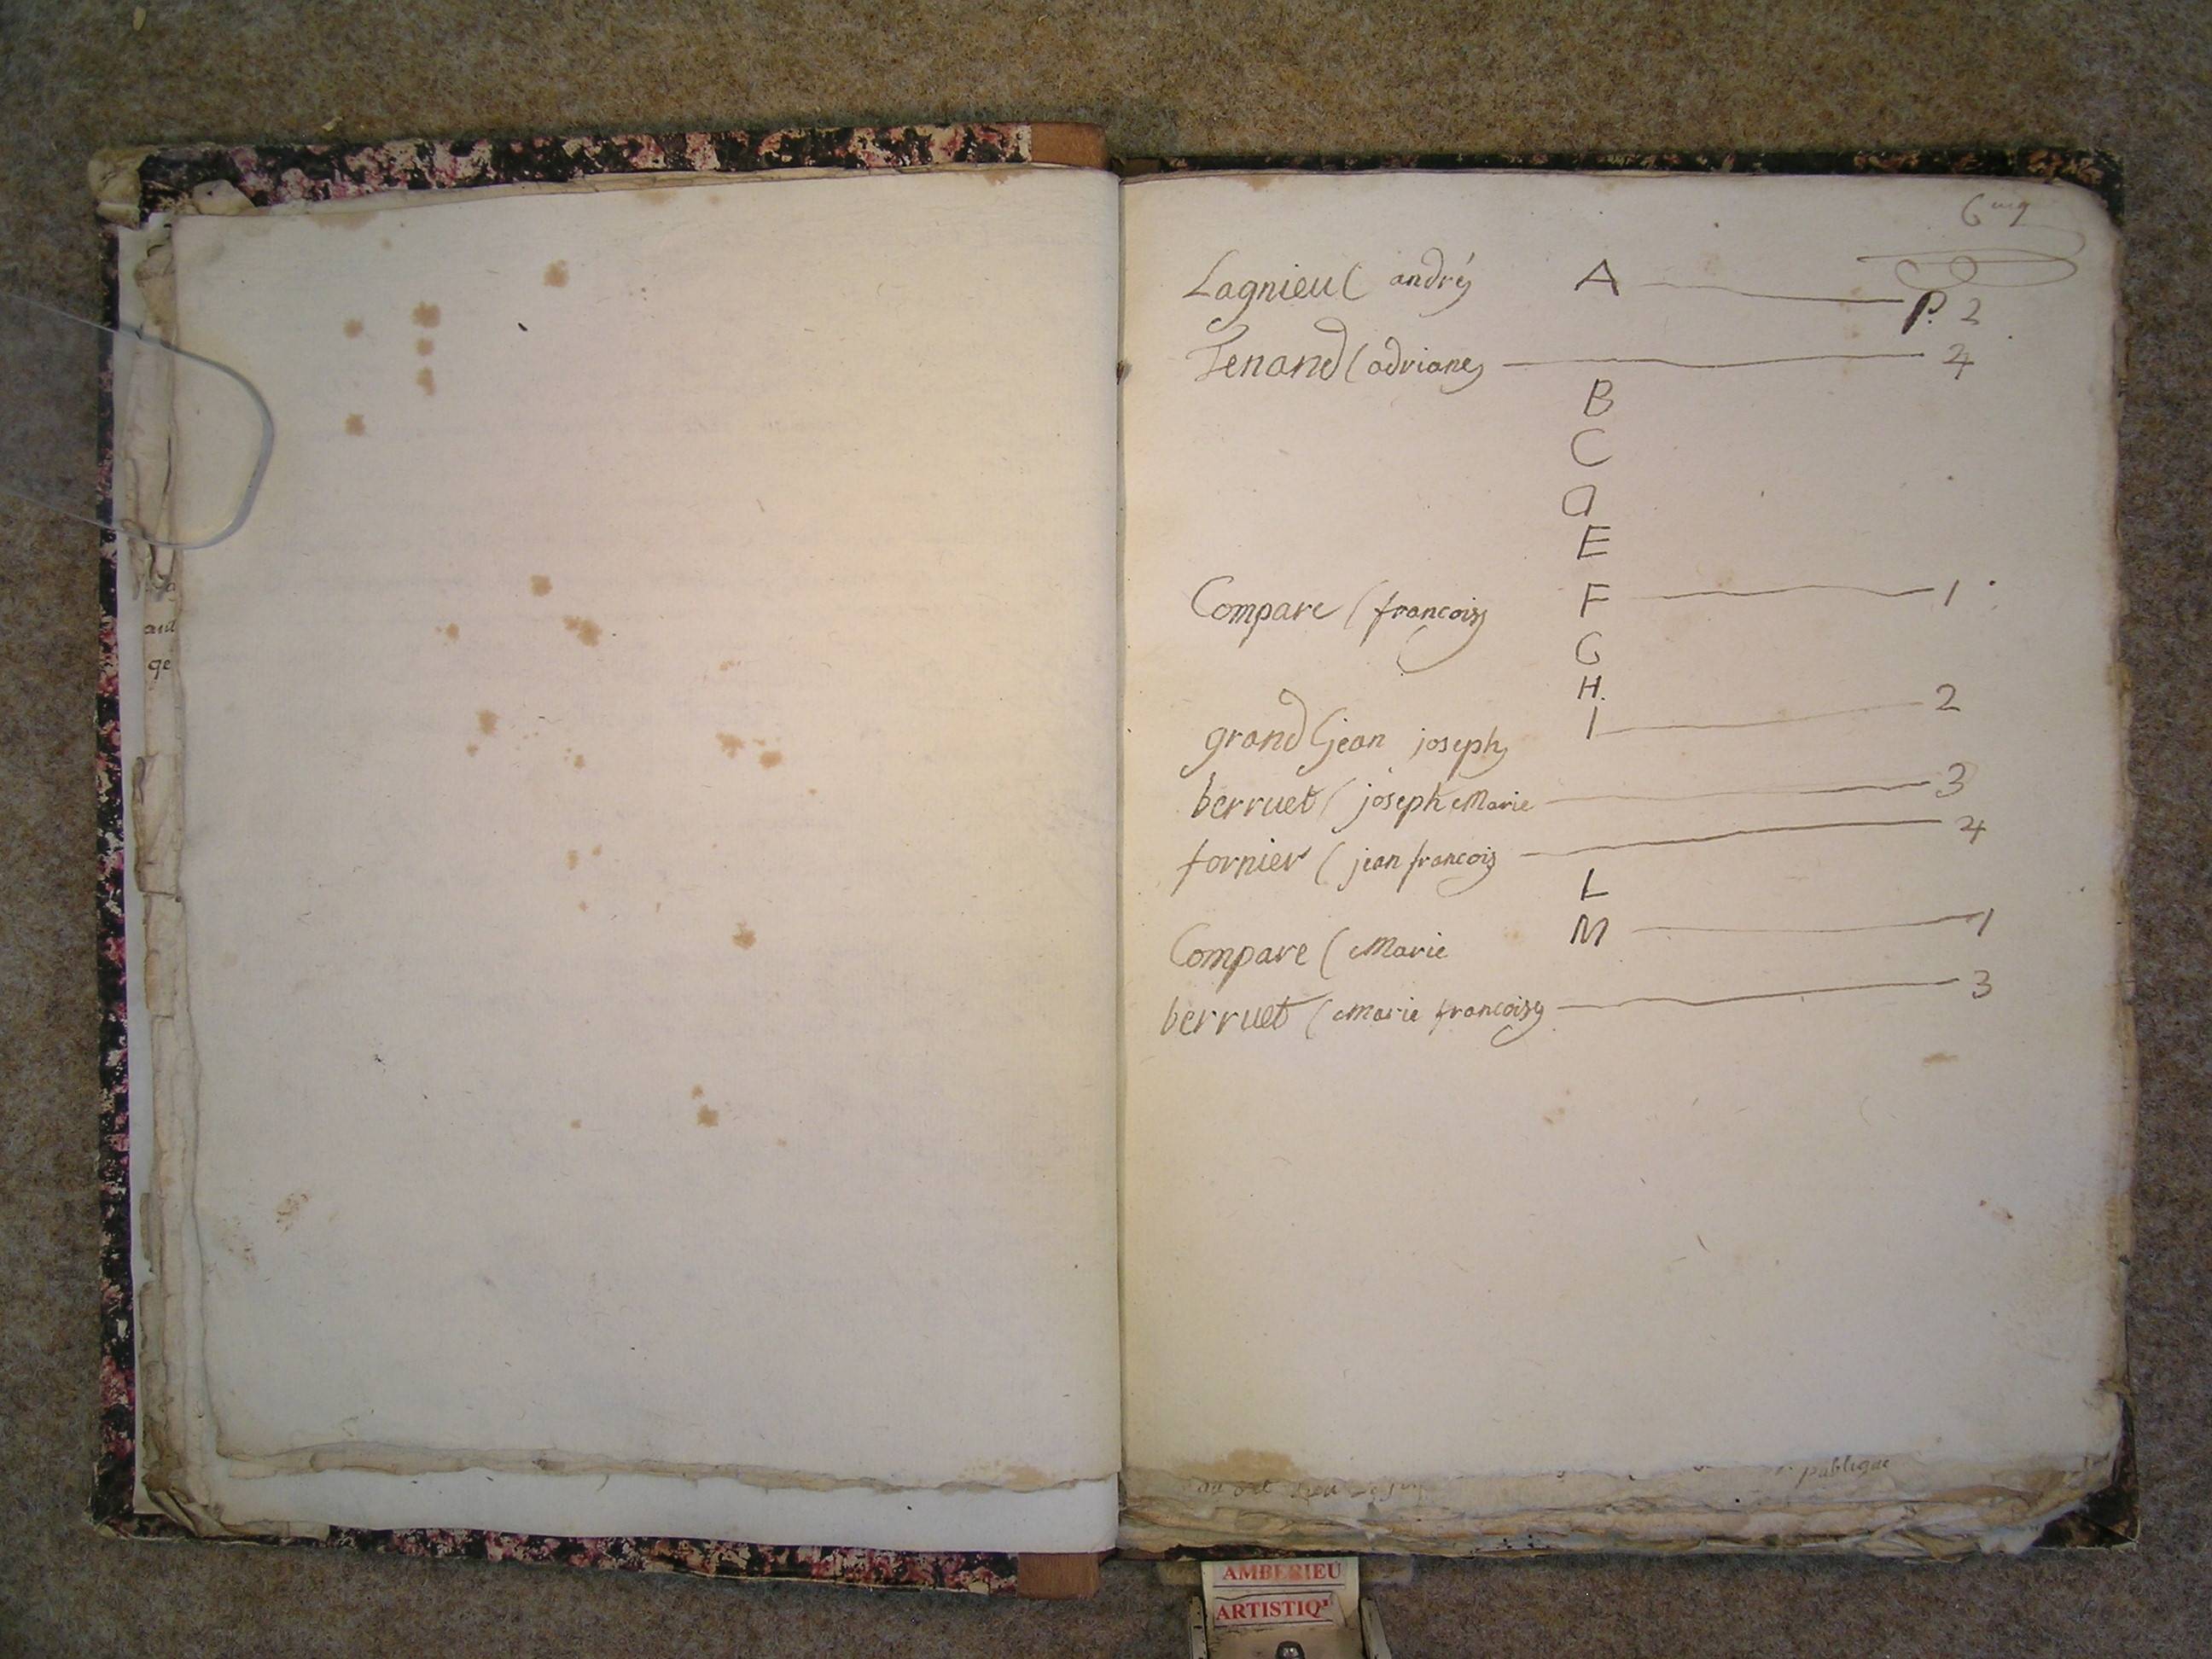 aud
ge
Lagnieu ( andré A P. 2
Tenand ( adriane 4
B
C
D
E
Compare ( francois F 1
G
H.
grand ( jean joseph I 2
berruet ( joseph Marie 3
fornier ( jean francois 4
L
Compare ( Marie M 1
berruet ( Marie francoise 3
publique
AMBERIEU
ARTISTIQ